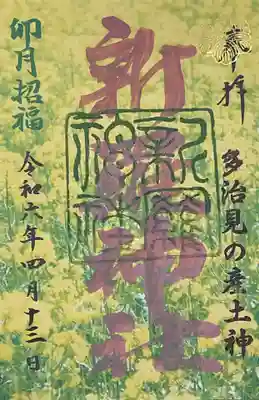 奉拝
多治見の産土神
新羅神社
新羅神社
卯月招福
令和六年四月十三日